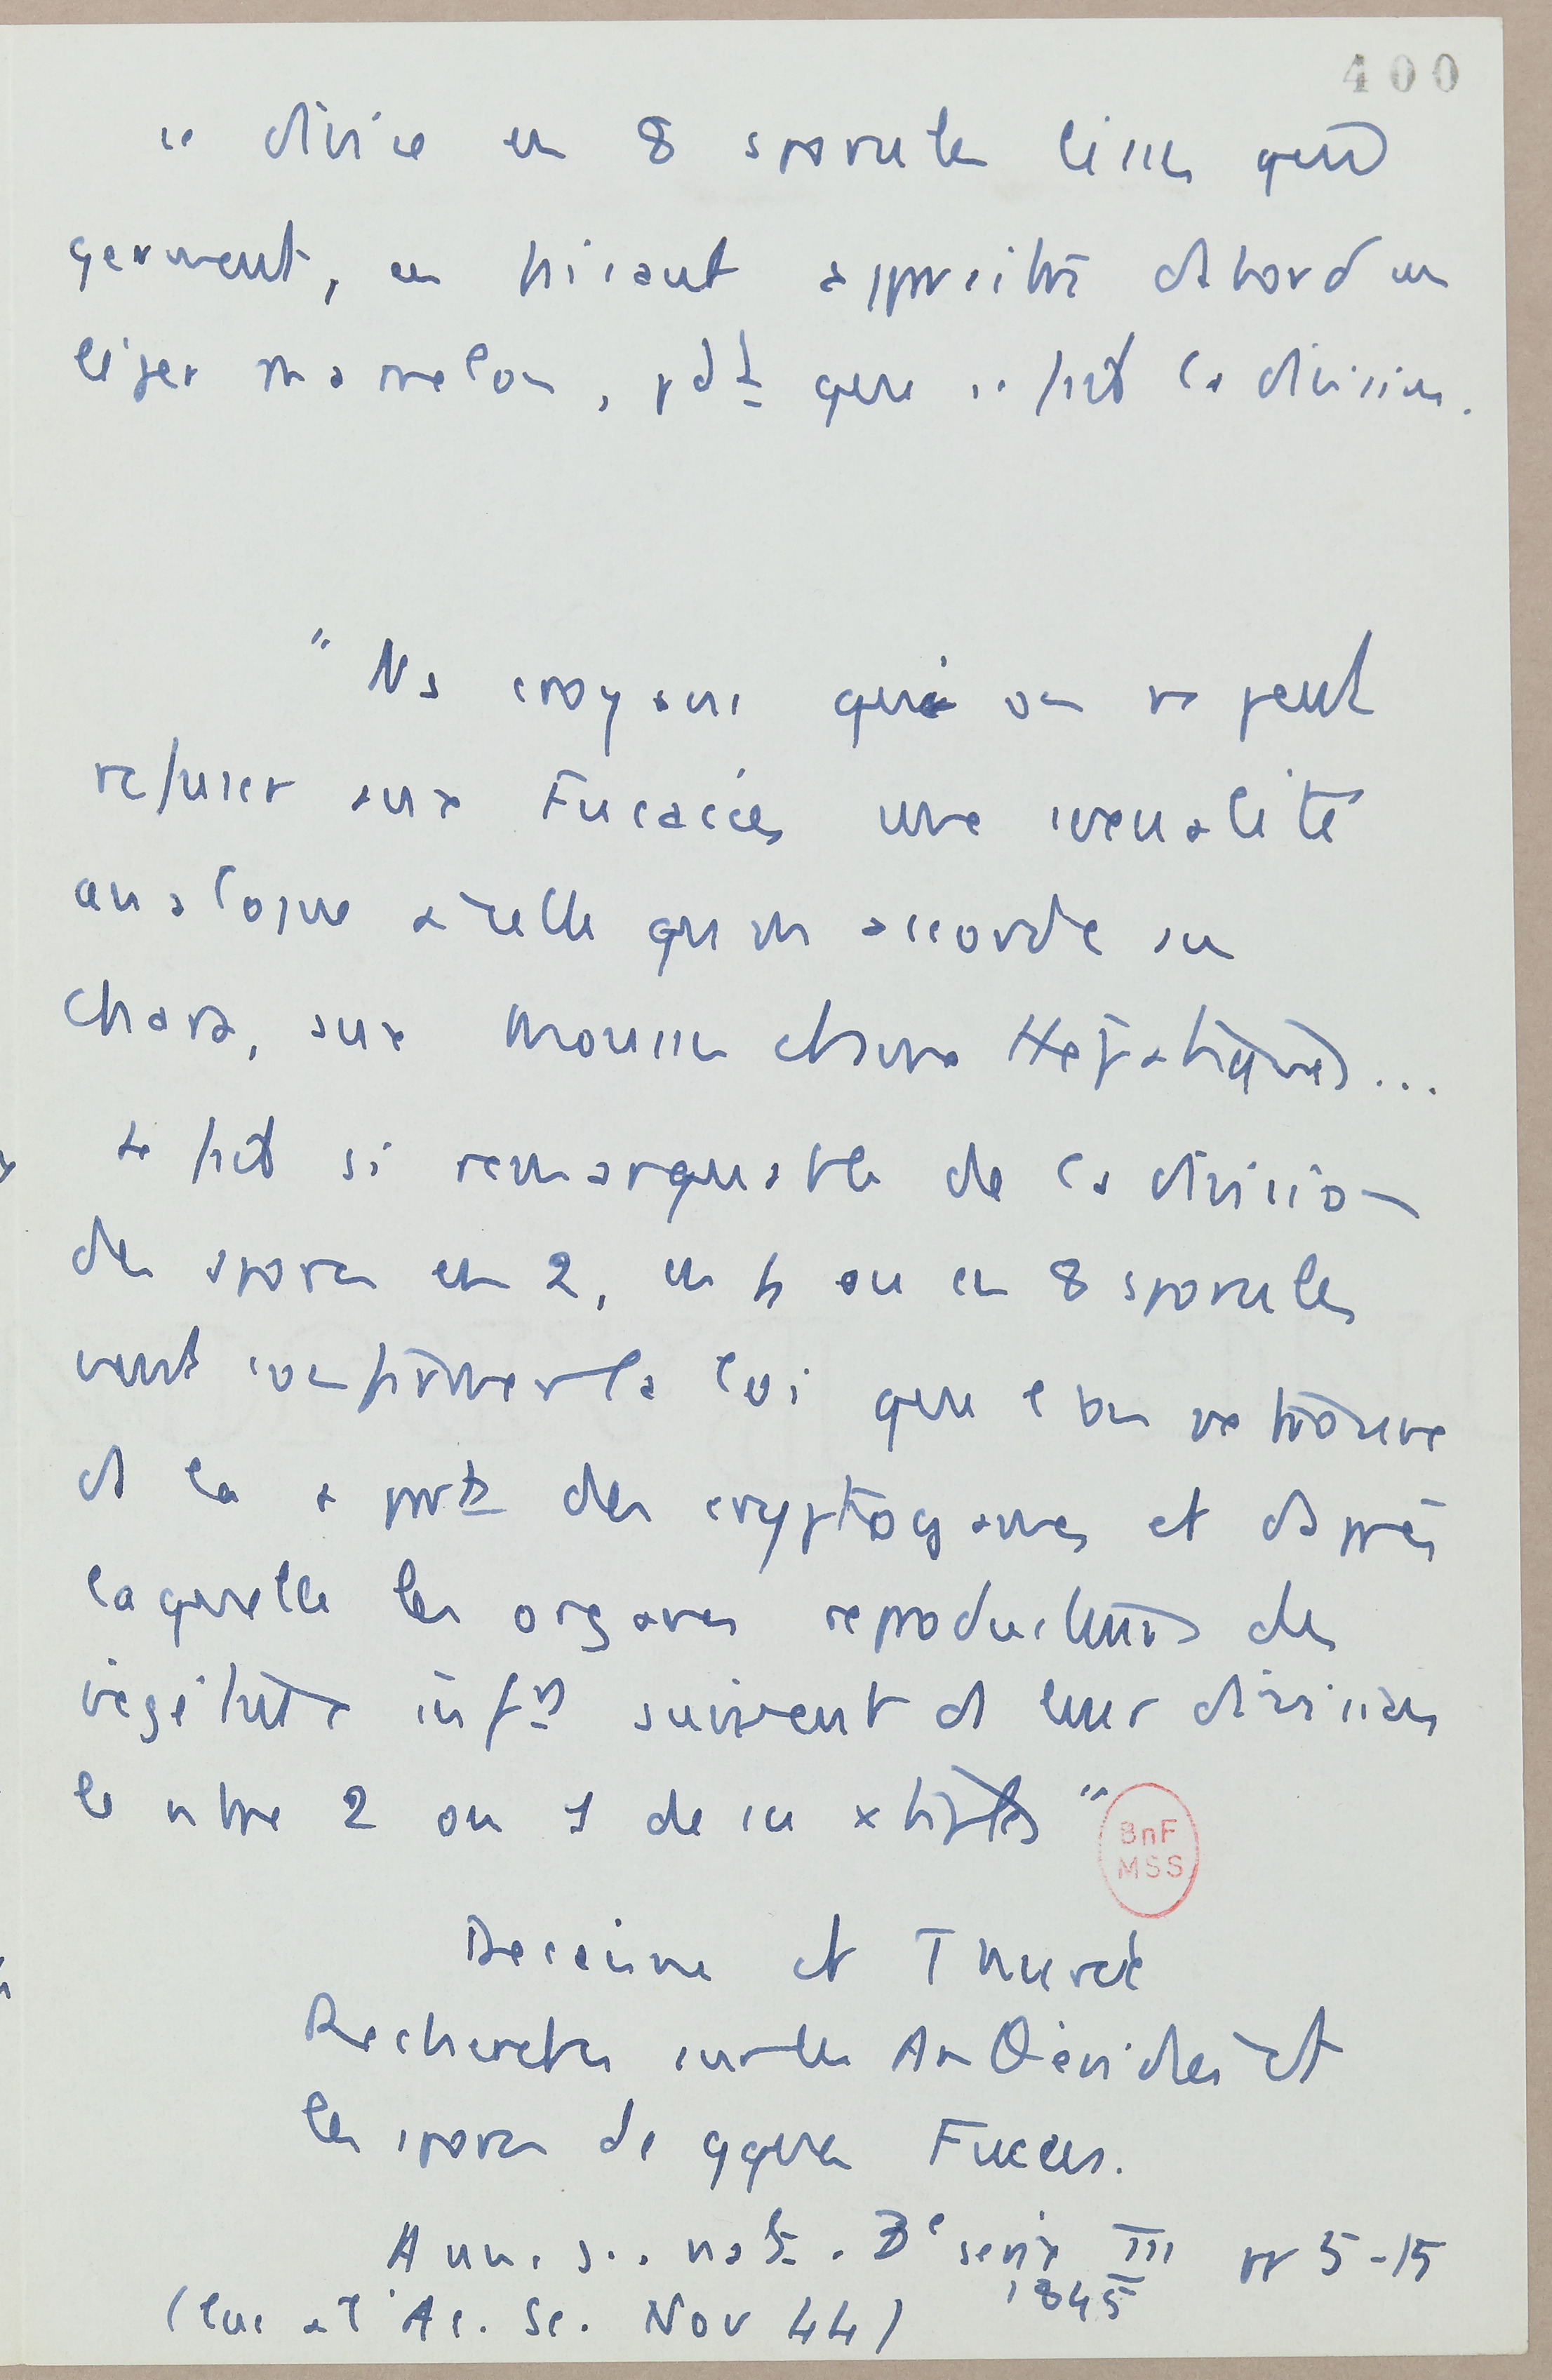 400
se divise en 8 sporules lisses qui
germent, en faisant apparaître d'abord un
léger mamelon, pdt que se fait la division.
" Ns croyons qu'on ne peut
refuser aux Fucacées une sexualité
analogue à celle qu'on accorde au
Chara, aux Mousses et aux Hépatiques...
Le fait si remarquable de la division
des spores en 2, en 4 ou en 8 sporules
vient confirmer la loi que l'on retrouve
ds la + part des cryptogames et d'après
laquelle les organes reproducteurs des
végétaux infrs suivent ds leur division
le nbre 2 ou 1 de ses x "
BnF
MSS
Decaisne et Thuret
Recherches sur les Anthéridies et
les spores de qques Fucus.
Ann. sc. nat. 3e série III pp 5-15
1845
(lue à l'Ac. Sc. Nov 44)